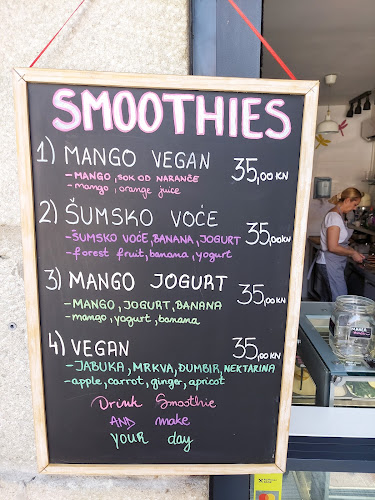 SMOOTHIES
1) MANGO VEGAN 35,00 KN
- MANGO, SOK OD NARANČE
- mango, orange juice
2) ŠUMSKO VOĆE 35,00 KN
- ŠUMSKO VOĆE, BANANA, JOGURT
- forest fruit, banana, yogurt
3) MANGO JOGURT 35,00 KN
- MANGO, JOGURT, BANANA
- mango, yogurt, banana
4) VEGAN 35,00 KN
- JABUKA, MRKVA, ĐUMBIR, NEKTARINA
- apple, carrot, ginger, apricot
Drink Smoothie
AND make
YOUR day